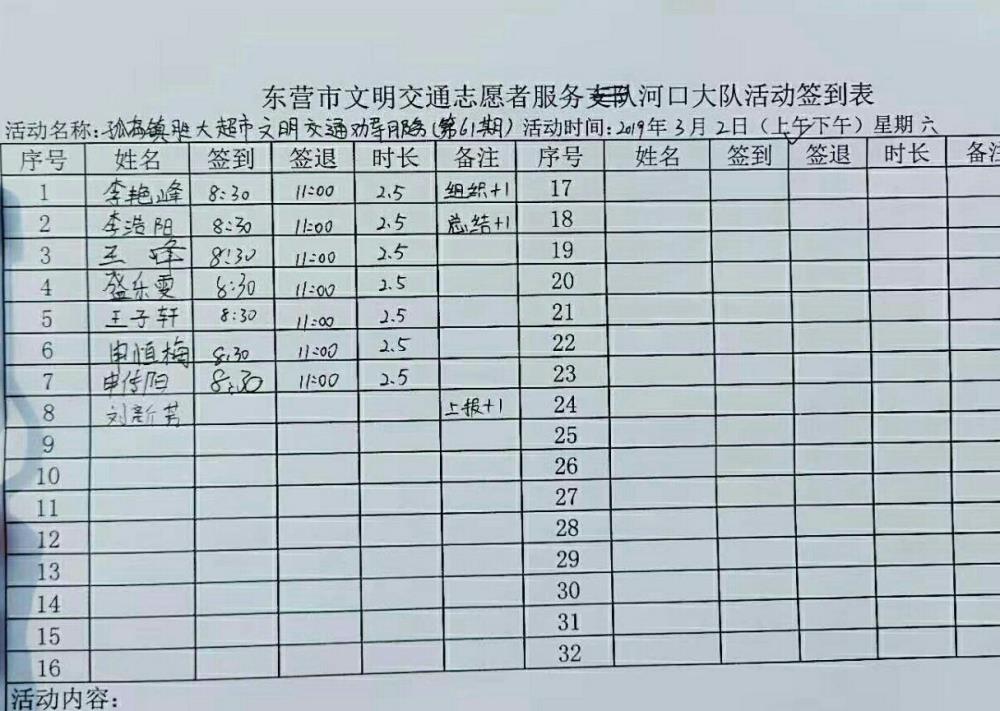 东营市文明交通志愿者服务支队河口大队活动签到表
活动名称：孤岛镇胜大超市文明交通劝导服务(第61期) 活动时间：2019年3月2日（上午下午）星期六
序号 姓名 签到 签退 时长 备注 序号 姓名 签到 签退 时长 备注
1 李艳峰 8:30 11:00 2.5 组织+1 17
2 李浩阳 8:30 11:00 2.5 总结+1 18
3 王峰 8:30 11:00 2.5 19
4 盛乐雯 8:30 11:00 2.5 20
5 王子轩 8:30 11:00 2.5 21
6 申恒梅 8:30 11:00 2.5 22
7 申传阳 8:30 11:00 2.5 23
8 刘新芳 上报+1 24
9 25
10 26
11 27
12 28
13 29
14 30
15 31
16 32
活动内容：